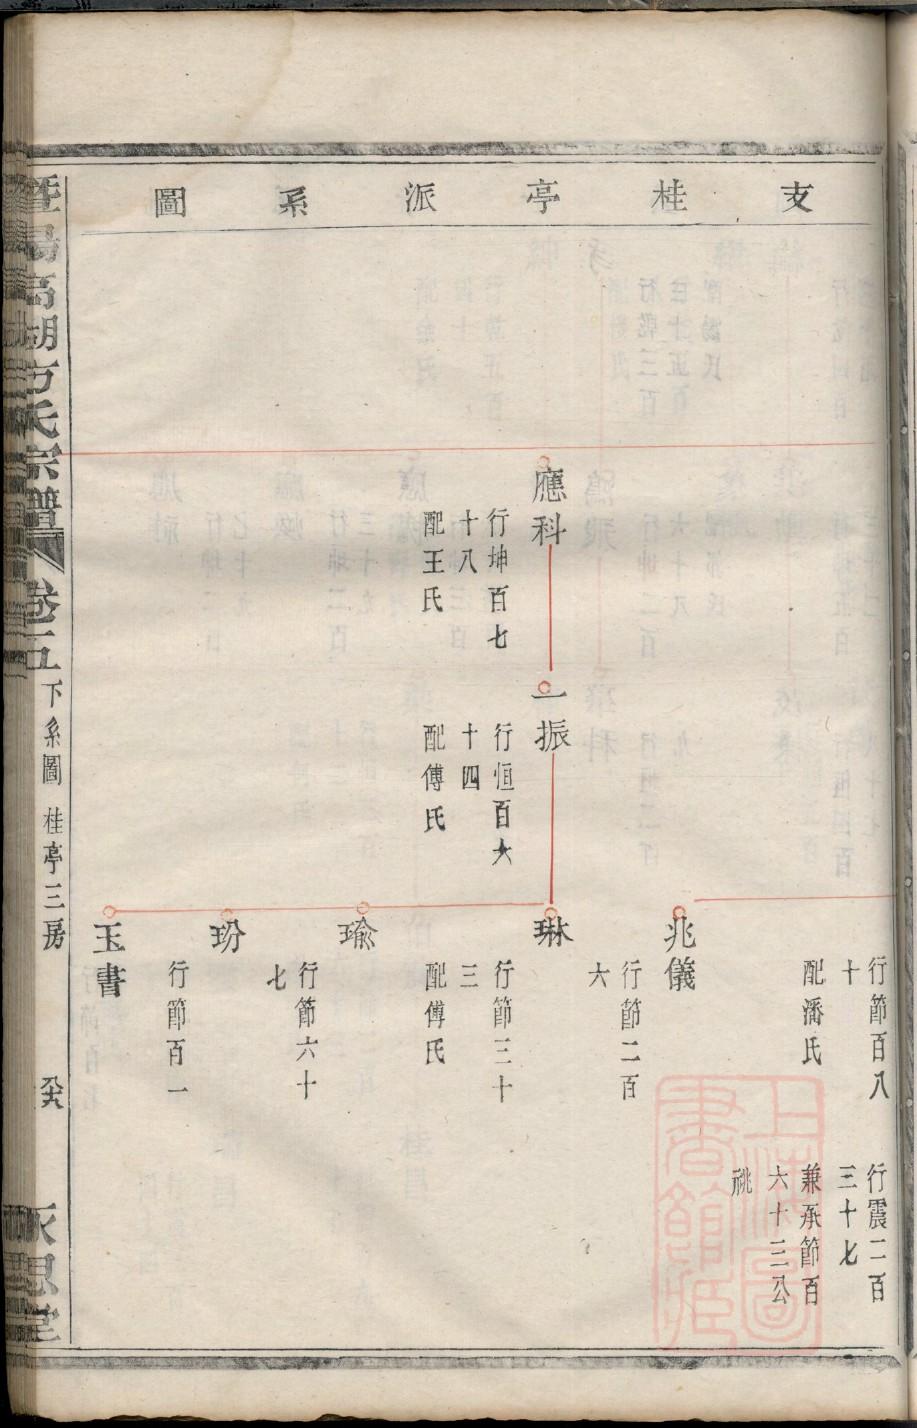 支桂亭派系圖
行節百八
十
配潘氏
行震二百
三十七
兼承節百
六十三公
祧
兆儀
行節二百
六
應科
行坤百七
十八
配王氏
一振
行恒百六
十四
配傅氏
琳
行節三十
三
配傅氏
瑜
行節六十
七
玢
行節百一
玉書
暨陽高湖方氏宗譜
卷十五
下系圖
桂亭三房
永思堂
上海圖書館藏